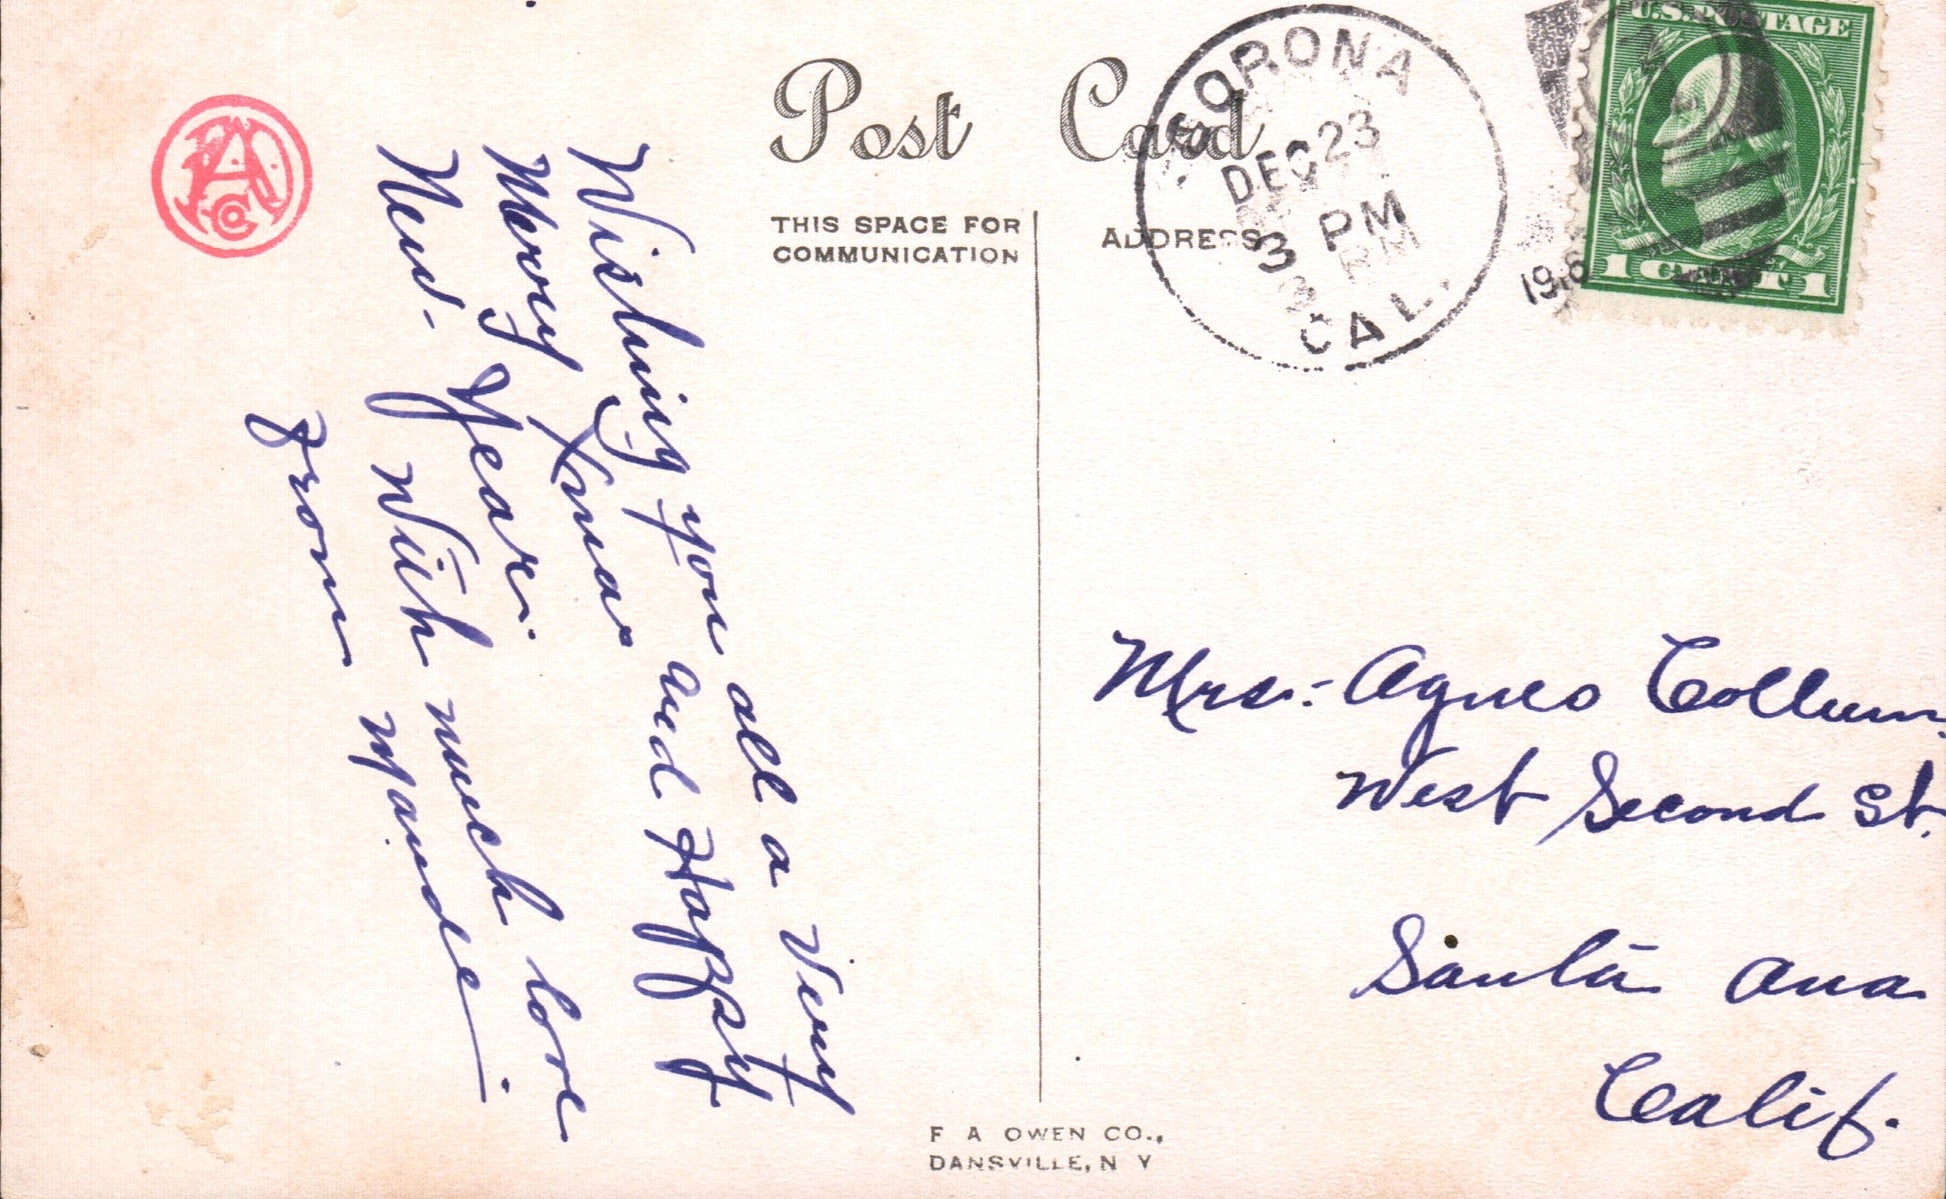 Post Card
THIS SPACE FOR
COMMUNICATION
ADDRESS
CORONA
DEC 23
3 PM
CAL.
U.S. POSTAGE
1 CENT 1
Wishing you all a Very
Merry Xmas and Happy
New- Year. With much love
From Maude
Mrs. Agnes Collum,
West Second St.
Santa Ana
Calif.
F A OWEN CO.,
DANSVILLE, N Y